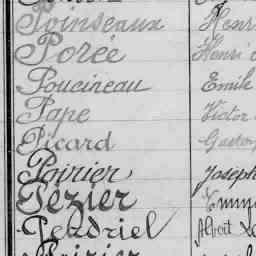 Poinseaux Henri
Porée Henri
Poucineau Emile
Pape Victor
Picard Gaston
Poirier Joseph
Pézier
Perdriel Albert
Poirier